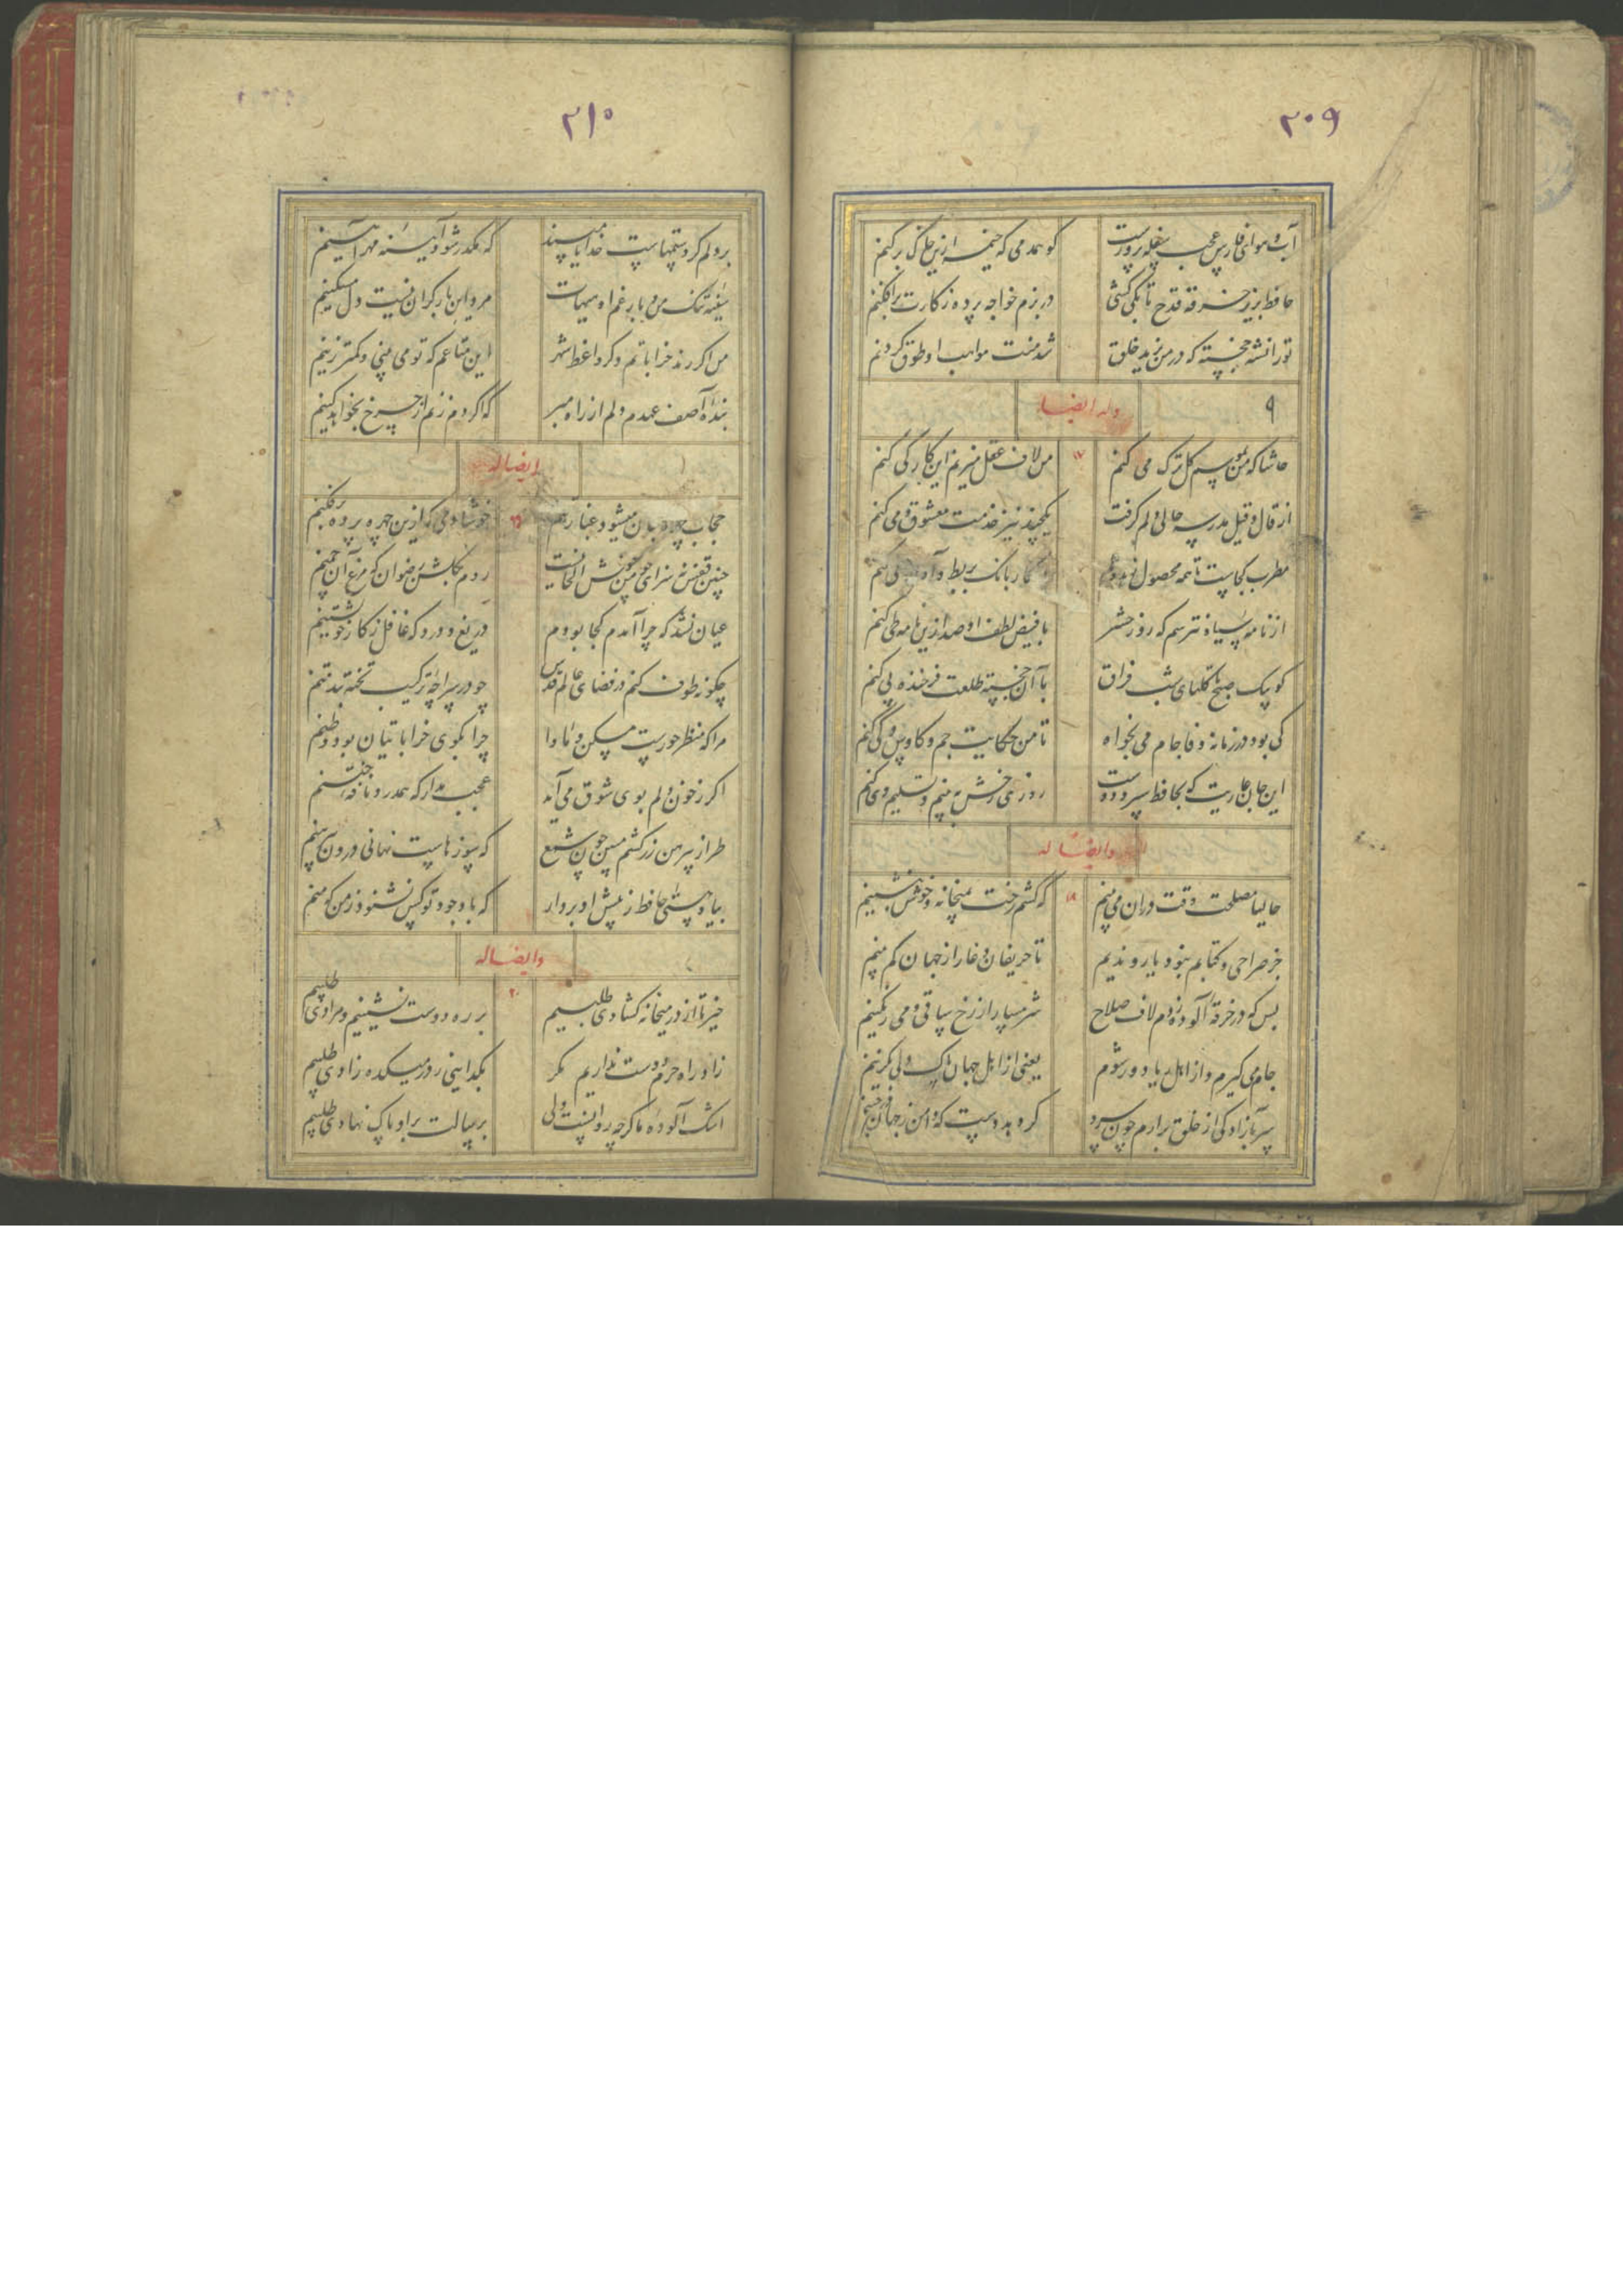 ۲۰۹
آب و هوای فارس عجب سفله پرورست کو همدمی که خیمه ازین خاک برکنم
حافظ بزیر خرقه قدح تا بکی کشی در بزم خواجه پرده ز کارت برافکنم
تورانشه خجسته که در من یزید خلق شد منت مواهب او طوق گردنم
وله ایضا
۹
حاشا که من بموسم گل ترک می کنم من لاف عقل میزنم این کار کی کنم
۱۷
از قال و قیل مدرسه حالی دلم گرفت یکچند نیز خدمت معشوق و می کنم
مطرب کجاست تا همه محصول زهد و بانک بربط و
از نامه سیاه نترسم که روز حشر با فیض لطف او صد ازین نامه طی کنم
کو پیک صبح تا گلهای شب فراق با آن خجسته طلعت فرخنده پی کنم
کی بود در زمانه وفا جام می بخواه تا من حکایت جم و کاوس و کی کنم
این جان عاریت که بحافظ سپرد دوست روزی رخش ببینم و تسلیم وی کنم
وایضا له
حالیا مصلحت وقت دران می بینم که کشم رخت بمیخانه و خوش بنشینم
۱۸
جز صراحی و کتابم نبود یار و ندیم تا حریفان دغا را ز جهان کم بینم
بس که در خرقه آلوده زدم لاف صلاح شرمسار از رخ ساقی و می رنگینم
جام می گیرم و از اهل ریا دور شوم یعنی از اهل جهان پاک دلی بگزینم
سر بآزادگی از خلق برارم چون سرو گر دهد دست که دامن ز جهان
۲۱۰
بر دلم گرد ستمهاست خدایا مپسند که مکدر شود آیینه مهر آیینم
سینه تنک من و بار غم او هیهات مرد این بار گران نیست دل مسکینم
من اگر رند خراباتم و گر واعظ شهر این متاعم که تو می بینی و کمتر زینم
بنده آصف عهدم دلم از راه مبر که اگر دم زنم از چرخ بخواهد کینم
ایضا له
حجاب چهره جان میشود غبار تنم خوشا دمی که ازین چهره پرده برفکنم
۱۹
چنین قفس نه سزای چو من خوش الحانیست روم بگلشن رضوان که مرغ آن چمنم
عیان نشد که چرا آمدم کجا بودم دریغ و درد که غافل ز کار خویشتنم
چگونه طوف کنم در فضای عالم قدس چو در سراچه ترکیب تخته بند تنم
مرا که منظر حورست مسکن و ماوا چرا بکوی خراباتیان بود وطنم
اگر ز خون دلم بوی شوق می آید عجب مدار که همدرد نافه ختنم
طراز پیرهن زرکشم مبین چون شمع که سوزهاست نهانی درون پیرهنم
بیا و هستی حافظ ز پیش او بردار که با وجود تو کس نشنود ز من که منم
وایضا له
خیز تا از در میخانه گشادی طلبیم بر ره دوست نشینیم و مرادی طلبیم
۲۰
زاد راه حرم دوست نداریم مگر بگدایی ز در میکده زادی طلبیم
اشک آلوده ما گرچه روانست ولی برسالت بر او پاک نهادی طلبیم